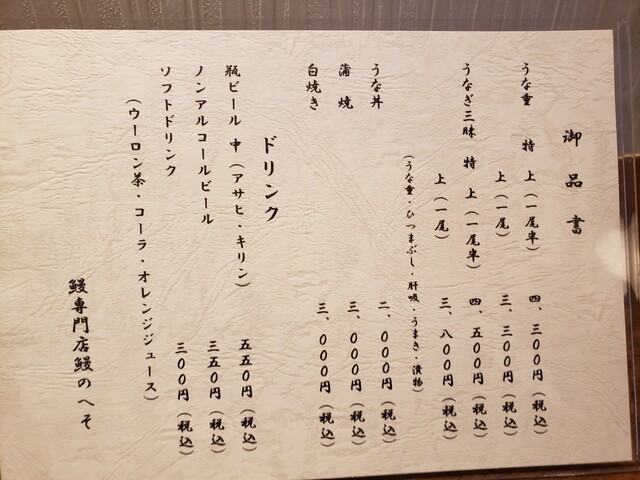 御品書
うな重 特上（一尾半） 四、三００円（税込）
上（一尾） 三、三００円（税込）
うなぎ三昧 特上（一尾半） 四、五００円（税込）
上（一尾） 三、八００円（税込）
（うな重・ひつまぶし・肝吸・うまき・漬物）
うな丼 二、０００円（税込）
蒲焼 三、０００円（税込）
白焼き 三、０００円（税込）
ドリンク
瓶ビール 中（アサヒ・キリン） 五五０円（税込）
ノンアルコールビール 三五０円（税込）
ソフトドリンク 三００円（税込）
（ウーロン茶・コーラ・オレンジジュース）
鰻専門店鰻のへそ